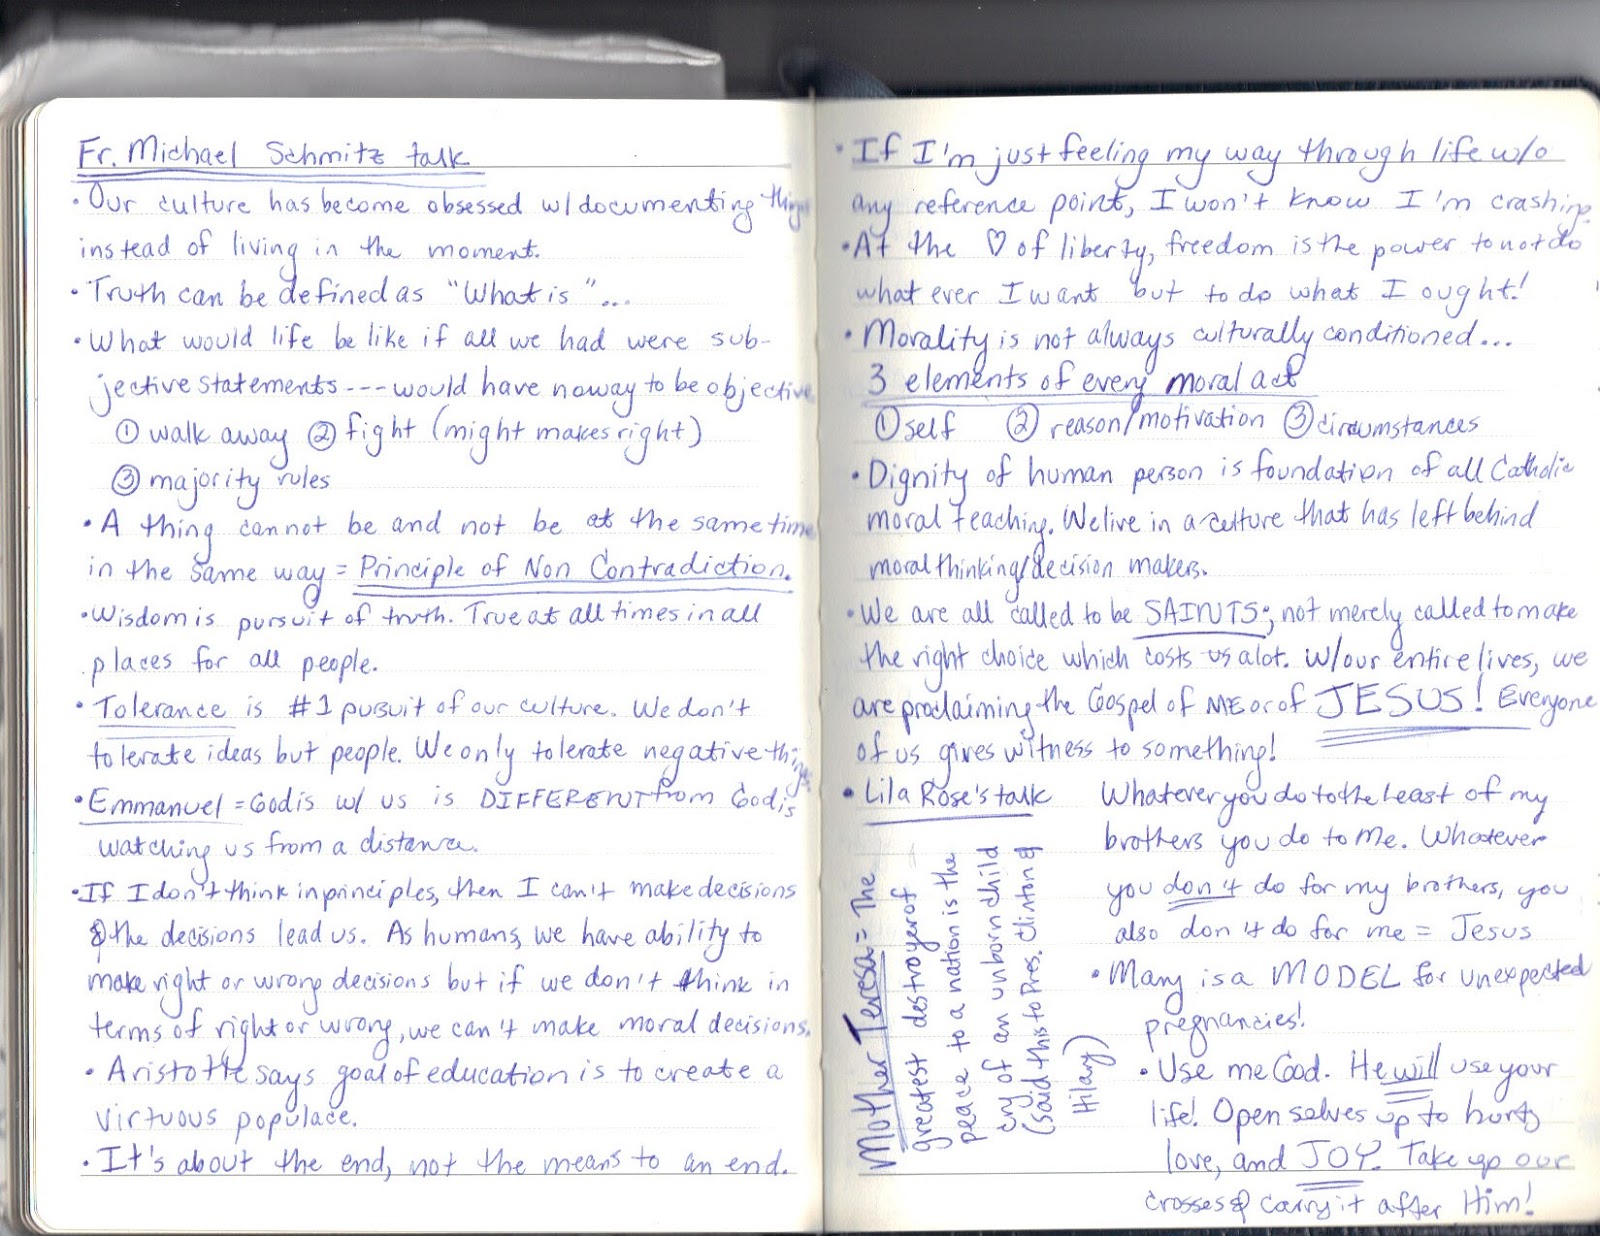 Fr. Michael Schmitz talk
• Our culture has become obsessed w/ documenting things
instead of living in the moment.
• Truth can be defined as "What is"...
• What would life be like if all we had were sub-
jective statements --- would have no way to be objective.
① walk away ② fight (might makes right)
③ majority rules
• A thing cannot be and not be at the same time
in the same way = Principle of Non Contradiction.
• Wisdom is pursuit of truth. True at all times in all
places for all people.
• Tolerance is #1 pursuit of our culture. We don't
tolerate ideas but people. We only tolerate negative things.
• Emmanuel = God is w/ us is DIFFERENT from God is
watching us from a distance.
• If I don't think in principles, then I can't make decisions
& the decisions lead us. As humans, we have ability to
make right or wrong decisions but if we don't think in
terms of right or wrong, we can't make moral decisions.
• Aristotle says goal of education is to create a
virtuous populace.
• It's about the end, not the means to an end.
• If I'm just feeling my way through life w/o
any reference point, I won't know I'm crashing.
• At the ♡ of liberty, freedom is the power to not do
what ever I want but to do what I ought!
• Morality is not always culturally conditioned...
3 elements of every moral act
① self ② reason/motivation ③ circumstances
• Dignity of human person is foundation of all Catholic
moral teaching. We live in a culture that has left behind
moral thinking/decision makers.
• We are all called to be SAINTS; not merely called to make
the right choice which costs us alot. W/ our entire lives, we
are proclaiming the Gospel of ME or of JESUS! Everyone
of us gives witness to something!
• Lila Rose's talk
Mother Teresa = The
greatest destroyer of
peace to a nation is the
cry of an unborn child
(said this to Pres. Clinton &
Hilary)
Whatever you do to the least of my
brothers you do to me. Whatever
you don't do for my brothers, you
also don't do for me = Jesus
• Mary is a MODEL for unexpected
pregnancies!
• Use me God. He will use your
life! Open selves up to hurts,
love, and JOY. Take up our
crosses & carry it after Him!